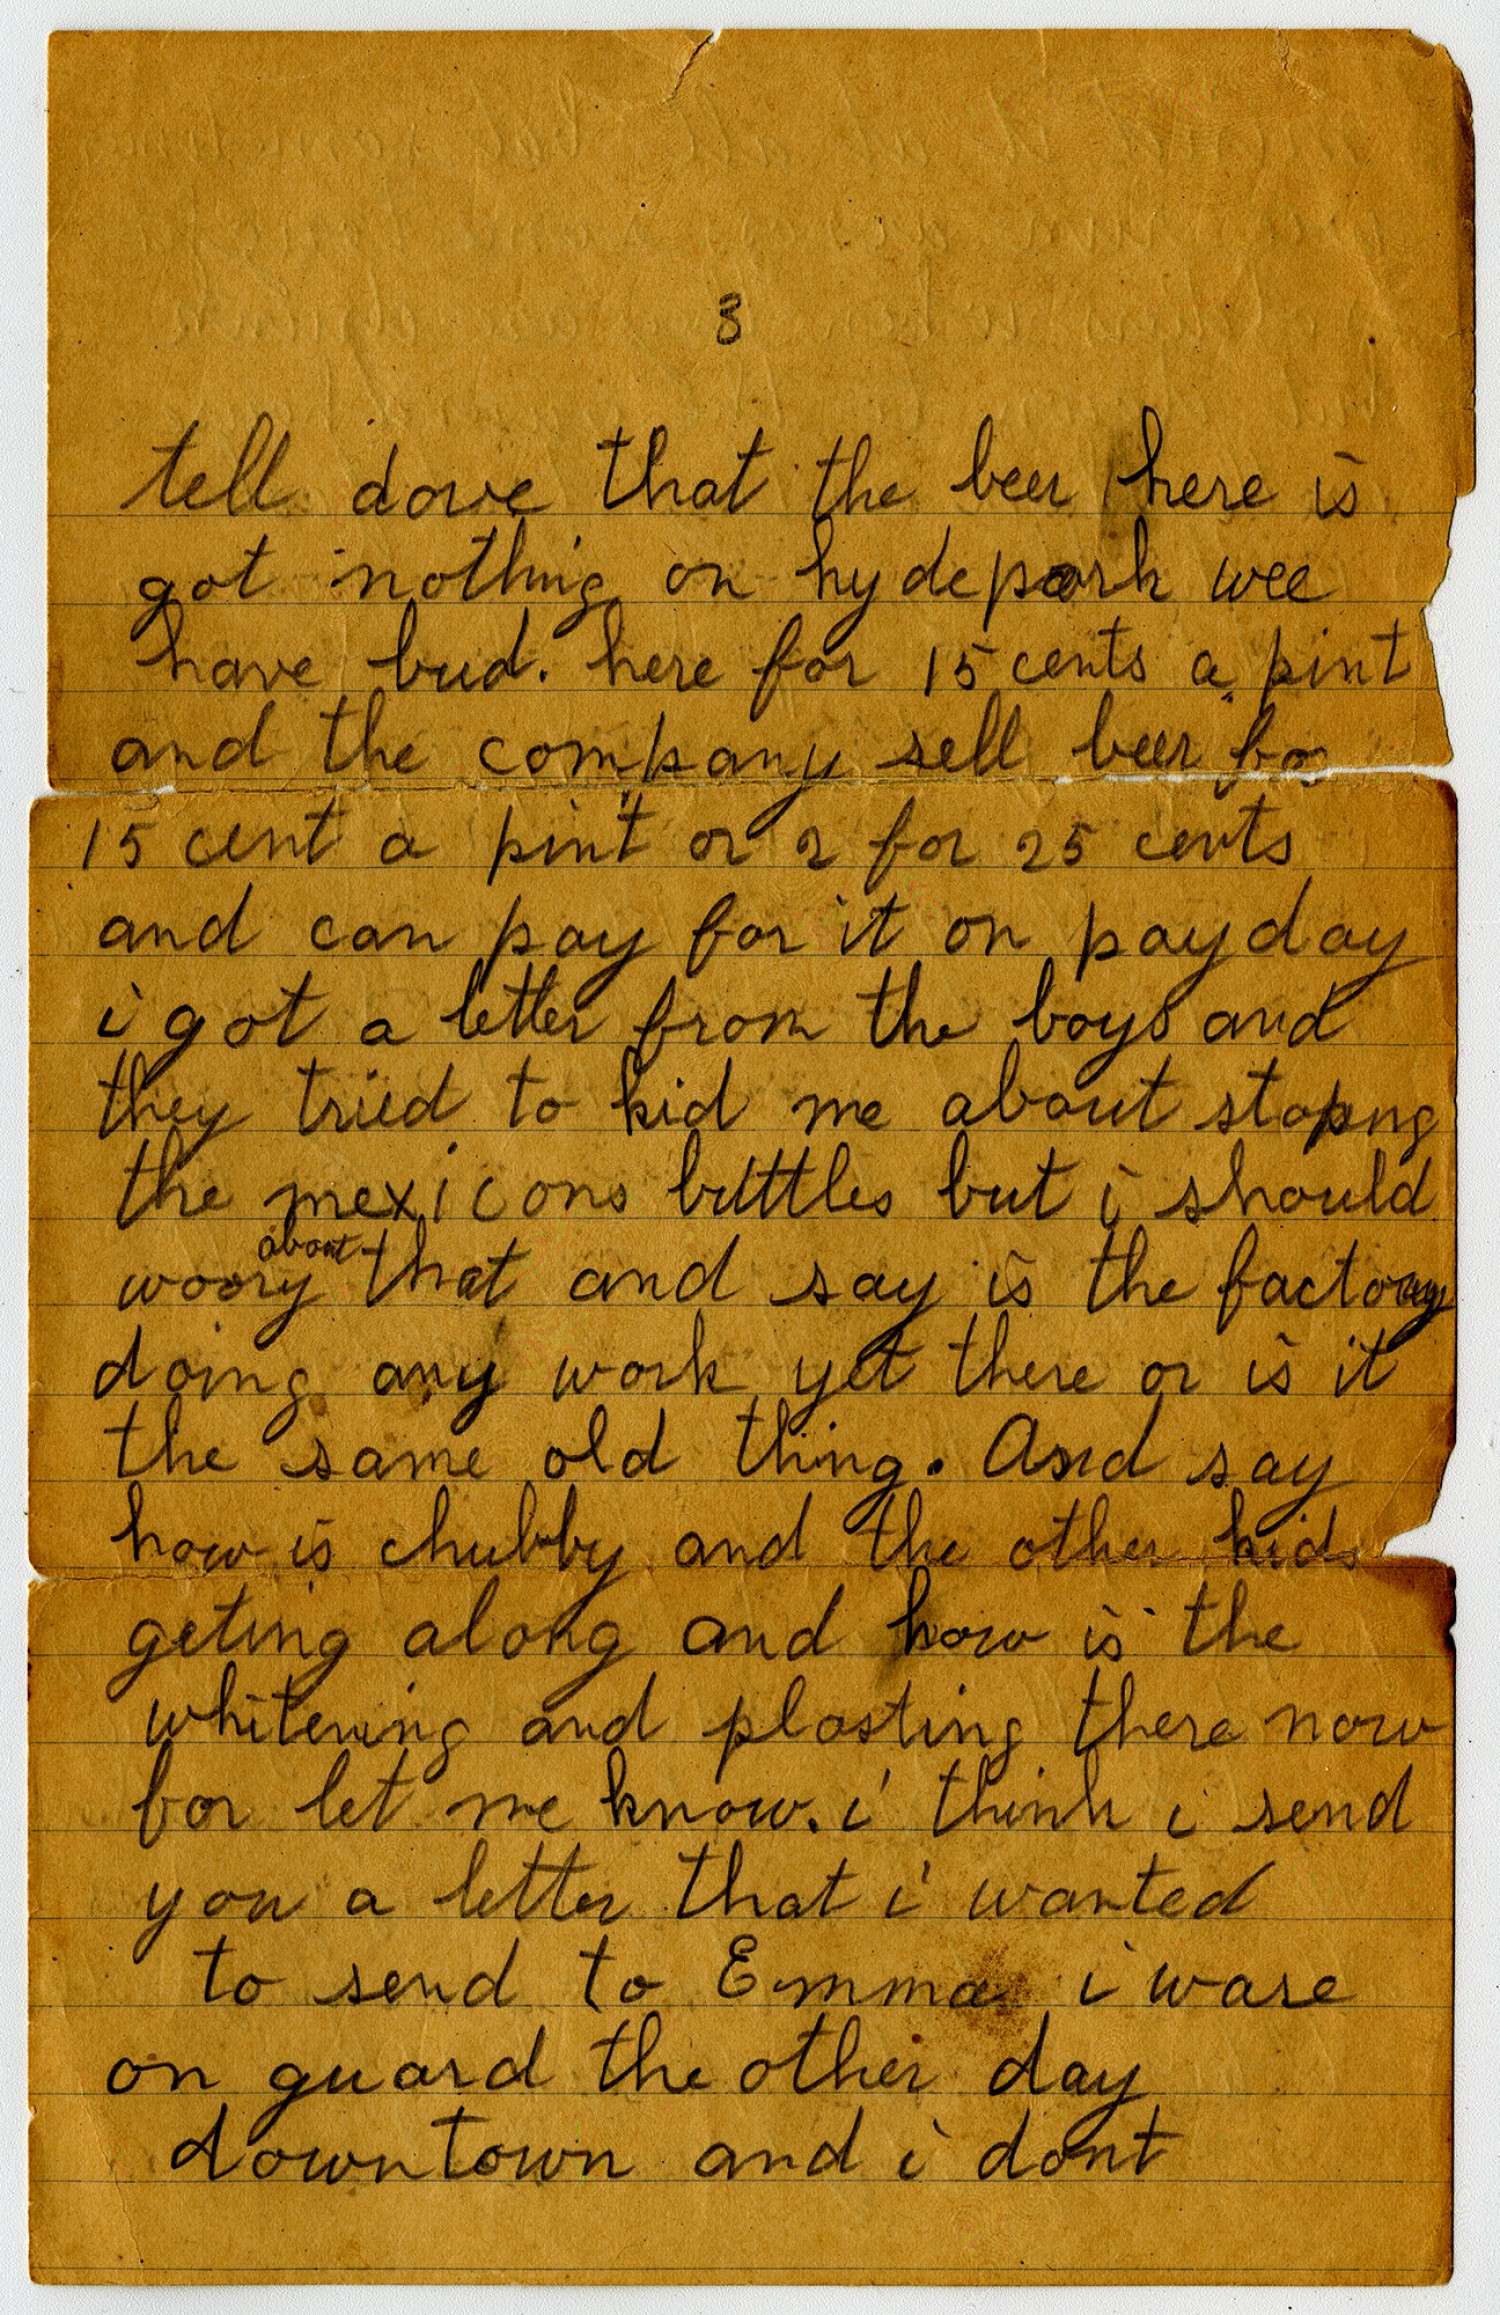 3
tell dave that the beer here is
got nothing on hydepark wee
have bud. here for 15 cents a pint
and the company sell beer for
15 cent a pint or 2 for 25 cents
and can pay for it on payday
i got a letter from the boys and
they tried to kid me about stoping
the mexicans buttles but i should
woory about that and say is the factory
doing any work yet there or is it
the same old thing. And say
how is chubby and the other kids
geting along and how is the
whitening and plasting there now
bor let me know. i think i send
you a letter that i wanted
to send to Emma i ware
on guard the other day
downtown and i dont